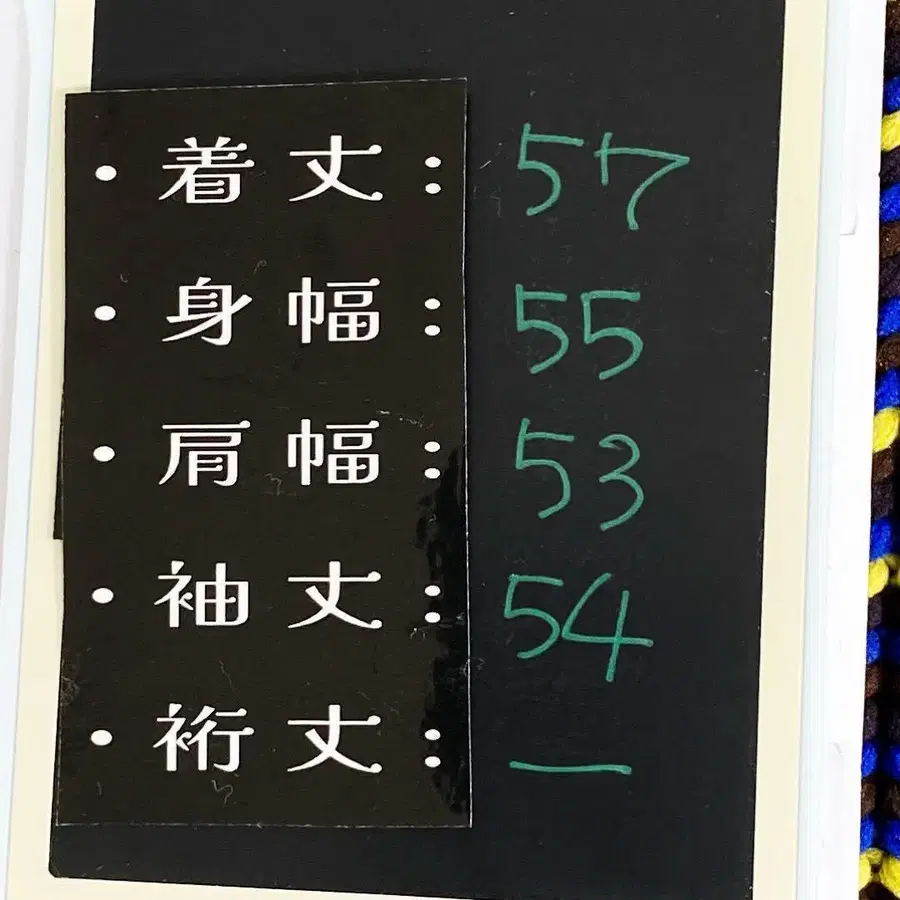 ・着丈:57
・身幅:55
・肩幅:53
・袖丈:54
・裄丈:—